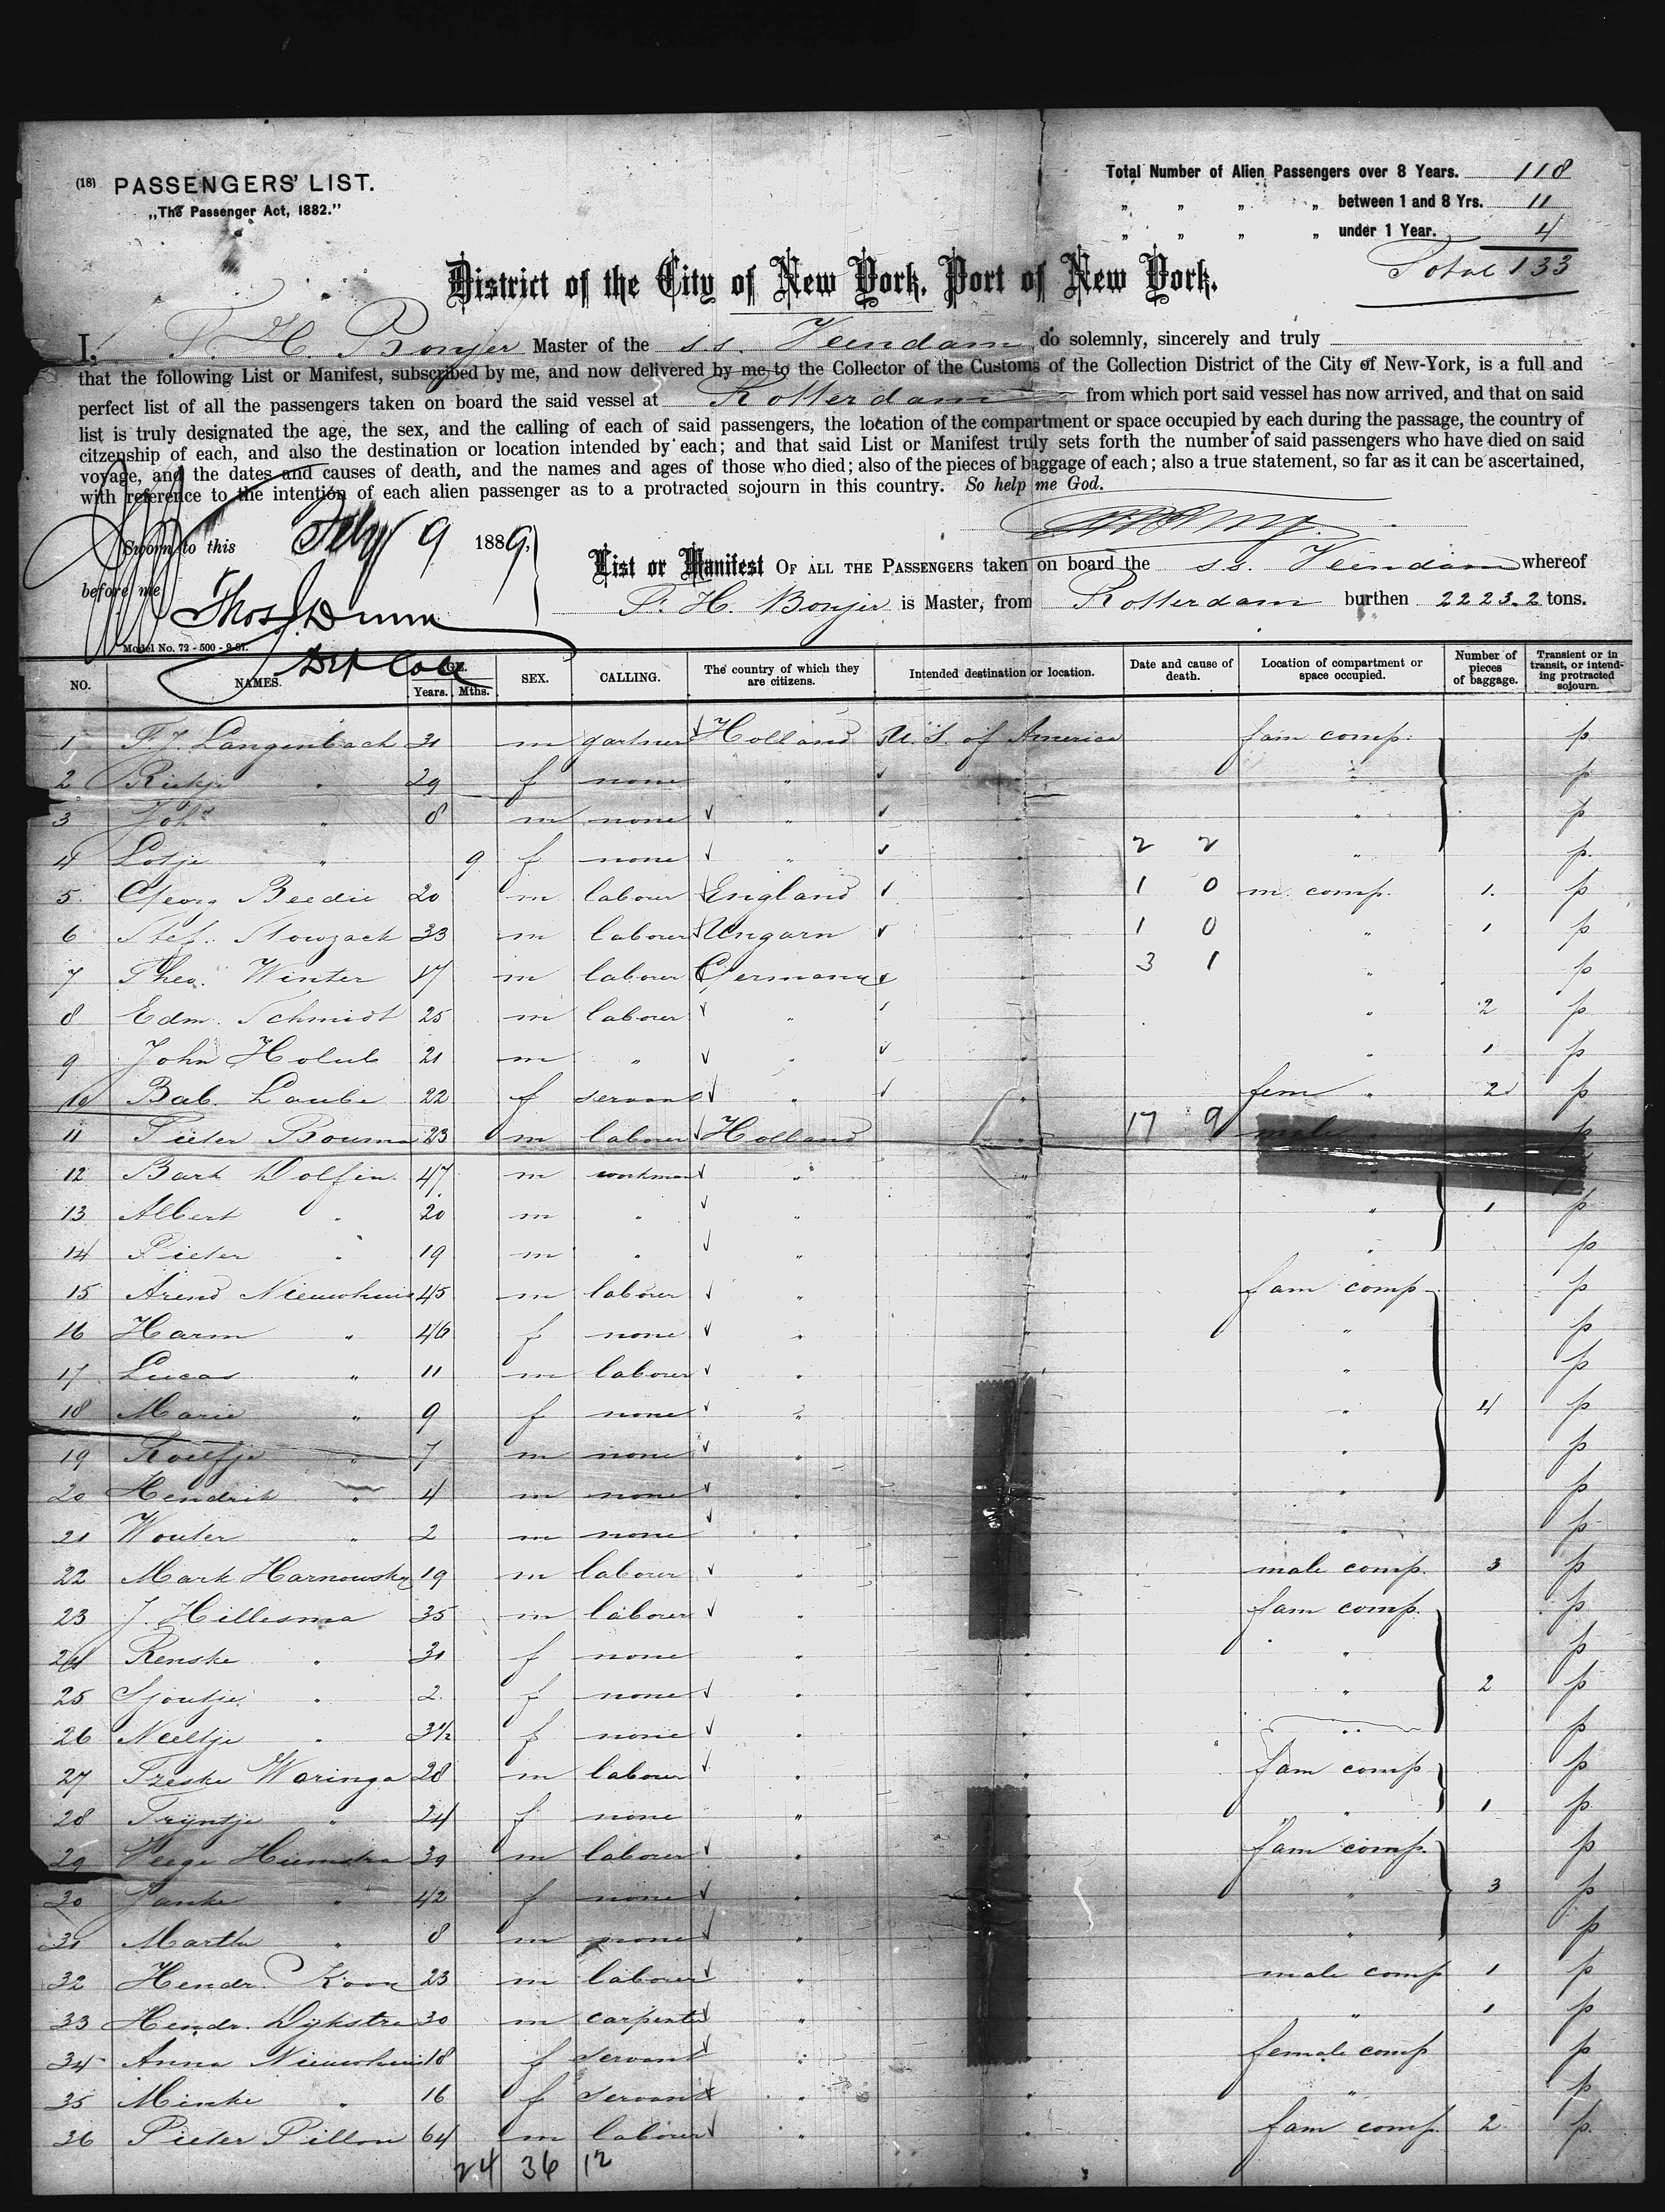 (18) PASSENGERS' LIST.
„The Passenger Act, 1882."
Total Number of Alien Passengers over 8 Years. 118
„ „ „ „ between 1 and 8 Yrs. 11
„ „ „ „ under 1 Year. 4
Total 133
District of the City of New York, Port of New York.
I, F. H. Bonjer Master of the s.s. Veendam do solemnly, sincerely and truly
that the following List or Manifest, subscribed by me, and now delivered by me to the Collector of the Customs of the Collection District of the City of New-York, is a full and
perfect list of all the passengers taken on board the said vessel at Rotterdam from which port said vessel has now arrived, and that on said
list is truly designated the age, the sex, and the calling of each of said passengers, the location of the compartment or space occupied by each during the passage, the country of
citzenship of each, and also the destination or location intended by each; and that said List or Manifest truly sets forth the number of said passengers who have died on said
voyage, and the dates and causes of death, and the names and ages of those who died; also of the pieces of baggage of each; also a true statement, so far as it can be ascertained,
with reference to the intention of each alien passenger as to a protracted sojourn in this country. So help me God.
Sworn to this Feby 9 1889,
before me Thos J Dunn
Dep Col
List or Manifest OF ALL THE PASSENGERS taken on board the s.s. Veendam whereof
F. H. Bonjer is Master, from Rotterdam burthen 2223.2 tons.
Model No. 72 - 500 -
NO. NAMES. AGE. Years. Mths. SEX. CALLING. The country of which they are citizens. Intended destination or location. Date and cause of death. Location of compartment or space occupied. Number of pieces of baggage. Transient or in transit, or intending protracted sojourn.
1 F. J. Langenbach 31 m gartner Holland U.S. of America fam comp. p
2 Riekje " 29 f none " " " p
3 Joh " 8 m none " " " p
4 Lotje " 9 f none " " 2 2 " p.
5. Georg Beedie 20 m labour England " 1 0 m. comp. 1. p
6 Stef. Slowzack 33 m labourer Ungarn " 1 0 " 1 p
7 Theo. Winter 17 m labourer Germany " 3 1 " p
8 Edm. Schmidt 25 m labourer " " " 2 p
9 John Holub 21 m " " " " 1 p
10 Bab. Laube 22 f servant " " fem " 2 p
11 Pieter Bouma 23 m labourer Holland " 17 9 male " p
12 Bart Dolfin 47 m workman " " "
13 Albert " 20 m " " " " 1 p
14 Pieter " 19 m " " " " p
15 Arend Nieuwhuis 45 m labourer " " fam comp p
16 Harm " 46 f none " " " p
17 Lucas " 11 m labourer " " " p
18 Marie " 9 f none " " 4 p
19 Roelfje " 7 m none " " p
20 Hendrik " 4 m none " " p
21 Wouter " 2 m none " " p
22 Mark Harnowsky 19 m laborer " male comp. 3 p
23 J. Hillesma 35 m laborer " fam comp. p
24 Renske " 31 f none " " " p
25 Sjoutje " 2 f none " " " 2 p
26 Neeltje " 3½ f none " " " p
27 Tzeske Waringa 28 m labourer " " fam comp p
28 Tryntje " 24 f none " " " 1 p.
29 Hiemstra 39 m laborer " fam comp. p
30 Janke " 42 f none " " " 3 p
31 Martha " 8 m none " " p
32 Hendr. Koon 23 m laborer " male comp 1 p
33 Hendr. Dykstra 30 m carpenter " " 1 p
34 Anna Nieuwhuis 18 f servant " female comp p
35 Mieske " 16 f servant " " " p
36 Pieter Pillon 64 m laborer " " fam comp. 2 p.
24 36 12